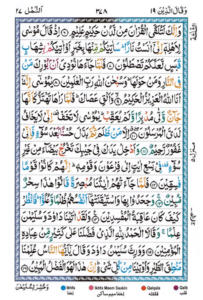 وَقَالَ الَّذِيْنَ ١٩ ٣٧٨ اَلنَّمْل ٢٧
وَاِنَّكَ لَتُلَقَّى الْقُرْاٰنَ مِنْ لَّدُنْ حَكِيْمٍ عَلِيْمٍ ۝ اِذْ قَالَ مُوْسٰى
لِاَهْلِهٖٓ اِنِّيْٓ اٰنَسْتُ نَارًا سَاٰتِيْكُمْ مِّنْهَا بِخَبَرٍ اَوْ اٰتِيْكُمْ بِشِهَابٍ
قَبَسٍ لَّعَلَّكُمْ تَصْطَلُوْنَ ۝ فَلَمَّا جَآءَهَا نُوْدِيَ اَنْۢ بُوْرِكَ مَنْ
فِي النَّارِ وَمَنْ حَوْلَهَا وَسُبْحٰنَ اللّٰهِ رَبِّ الْعٰلَمِيْنَ ۝ يٰمُوْسٰٓى اِنَّهٗٓ
اَنَا اللّٰهُ الْعَزِيْزُ الْحَكِيْمُ ۝ وَاَلْقِ عَصَاكَ فَلَمَّا رَاٰهَا تَهْتَزُّ كَاَنَّهَا
جَآنٌّ وَّلّٰى مُدْبِرًا وَّلَمْ يُعَقِّبْ يٰمُوْسٰى لَا تَخَفْ اِنِّيْ لَا يَخَافُ
لَدَيَّ الْمُرْسَلُوْنَ ۝ اِلَّا مَنْ ظَلَمَ ثُمَّ بَدَّلَ حُسْنًۢا بَعْدَ سُوْٓءٍ فَاِنِّيْ
غَفُوْرٌ رَّحِيْمٌ ۝ وَاَدْخِلْ يَدَكَ فِيْ جَيْبِكَ تَخْرُجْ بَيْضَآءَ مِنْ غَيْرِ
سُوْٓءٍ فِيْ تِسْعِ اٰيٰتٍ اِلٰى فِرْعَوْنَ وَقَوْمِهٖ اِنَّهُمْ كَانُوْا قَوْمًا
فٰسِقِيْنَ ۝ فَلَمَّا جَآءَتْهُمْ اٰيٰتُنَا مُبْصِرَةً قَالُوْا هٰذَا سِحْرٌ
مُّبِيْنٌ ۝ وَجَحَدُوْا بِهَا وَاسْتَيْقَنَتْهَآ اَنْفُسُهُمْ ظُلْمًا وَّعُلُوًّا فَانْظُرْ
كَيْفَ كَانَ عَاقِبَةُ الْمُفْسِدِيْنَ ۝ وَلَقَدْ اٰتَيْنَا دَاوٗدَ وَسُلَيْمٰنَ
عِلْمًا وَقَالَا الْحَمْدُ لِلّٰهِ الَّذِيْ فَضَّلَنَا عَلٰى كَثِيْرٍ مِّنْ عِبَادِهِ
الْمُؤْمِنِيْنَ ۝ وَوَرِثَ سُلَيْمٰنُ دَاوٗدَ وَقَالَ يٰٓاَيُّهَا النَّاسُ عُلِّمْنَا
مَنْطِقَ الطَّيْرِ وَاُوْتِيْنَا مِنْ كُلِّ شَيْءٍ اِنَّ هٰذَا لَهُوَ الْفَضْلُ الْمُبِيْنُ ۝
Ikhfa Meem Saakin Qalqala